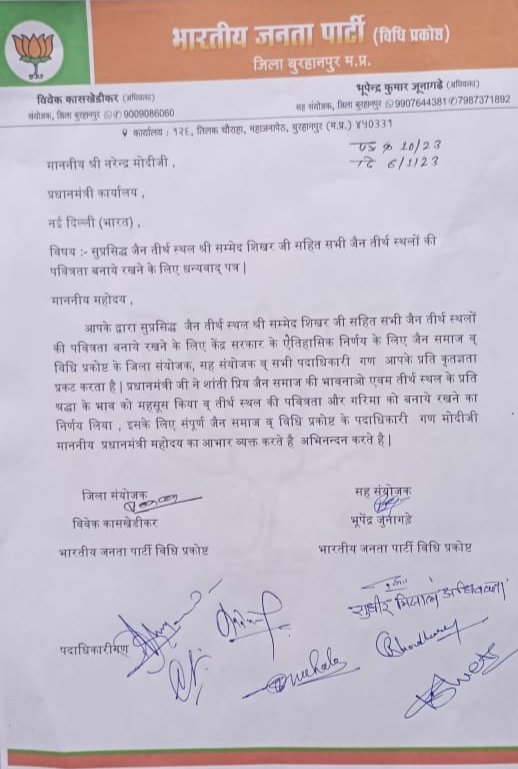 भारतीय जनता पार्टी (विधि प्रकोष्ठ)
जिला बुरहानपुर म.प्र.
विवेक कासखेडीकर (अधिवक्ता)
संयोजक, जिला बुरहानपुर 9009086060
भूपेन्द्र कुमार जूनागढे (अधिवक्ता)
सह संयोजक, जिला बुरहानपुर 9907644381 7987371892
कार्यालय : १२६, तिलक चौराहा, महाजनापेठ, बुरहानपुर (म.प्र.) ४५०३३१
10/23
6/1/23
माननीय श्री नरेन्द्र मोदीजी ,
प्रधानमंत्री कार्यालय ,
नई दिल्ली (भारत) ,
विषय :- सुप्रसिद्ध जैन तीर्थ स्थल श्री सम्मेद शिखर जी सहित सभी जैन तीर्थ स्थलों की
पवित्रता बनाये रखने के लिए धन्यवाद् पत्र |
माननीय महोदय ,
आपके द्वारा सुप्रसिद्ध जैन तीर्थ स्थल श्री सम्मेद शिखर जी सहित सभी जैन तीर्थ स्थलों
की पवित्रता बनाये रखने के लिए केंद्र सरकार के ऐतिहासिक निर्णय के लिए जैन समाज व्
विधि प्रकोष्ट के जिला संयोजक, सह संयोजक व् सभी पदाधिकारी गण आपके प्रति कृतज्ञता
प्रकट करता है | प्रधानमंत्री जी ने शांती प्रिय जैन समाज की भावनाओ एवम तीर्थ स्थल के प्रति
श्रद्धा के भाव को महसूस किया व् तीर्थ स्थल की पवित्रता और गरिमा को बनाये रखने का
निर्णय लिया , इसके लिए संपूर्ण जैन समाज व् विधि प्रकोष्ट के पदाधिकारी गण मोदीजी
माननीय प्रधानमंत्री महोदय का आभार व्यक्त करते है अभिनन्दन करते है |
जिला संयोजक
सह संयोजक
विवेक कासखेडीकर
भूपेंद्र जुनागडे
भारतीय जनता पार्टी विधि प्रकोष्ट
भारतीय जनता पार्टी विधि प्रकोष्ट
पदाधिकारीगण